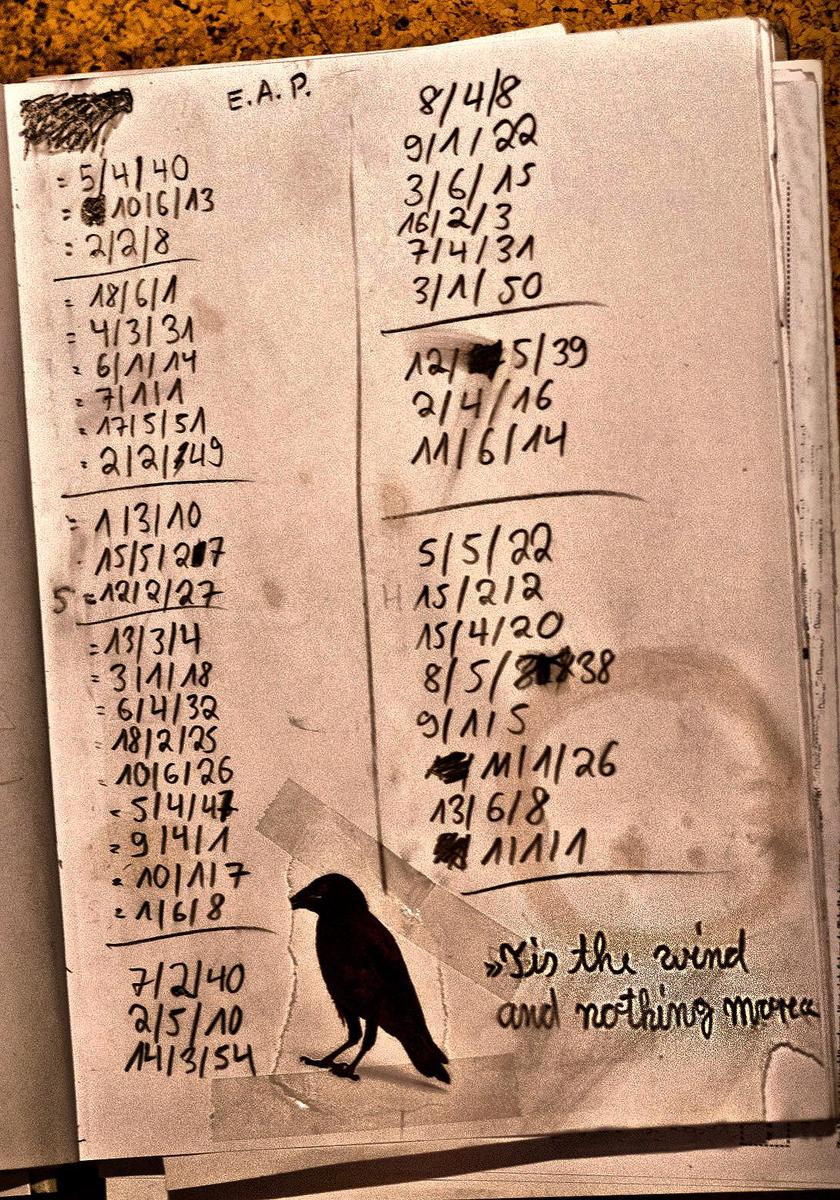 E.A.P.
= 5/4/40
= 10/6/13
= 2/2/8
= 18/6/1
= 4/3/31
= 6/1/14
= 7/1/1
= 17/5/51
= 2/2/49
= 1/3/10
15/5/27
5 = 12/2/27
= 13/3/4
= 3/1/18
= 6/4/32
= 18/2/25
= 10/6/26
= 5/4/47
= 9/4/1
= 10/1/7
= 1/6/8
7/2/40
2/5/10
14/3/54
8/4/8
9/1/22
3/6/15
16/2/3
7/4/31
3/1/50
12/5/39
2/4/16
11/6/14
5/5/22
H 15/2/2
15/4/20
8/5/38
9/1/5
11/1/26
13/6/8
1/1/1
„Tis the wind
and nothing more“